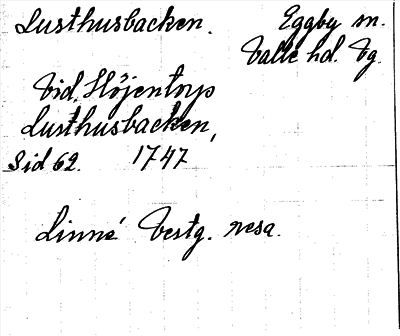 Lusthusbacken.
Eggby sn.
Valle hd. Vg.
Vid Höjentorp
Lusthusbacken,
Sid 62. 1747
Linné Vestg. resa.